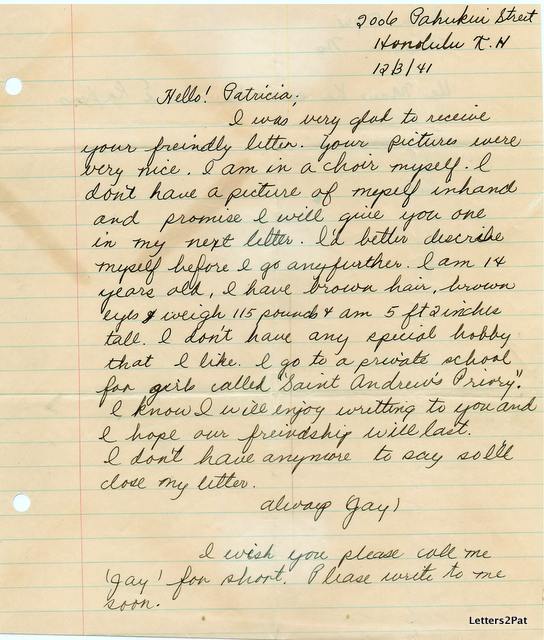 2006 Pahukui Street
Honolulu T.H
12/3/41
Hello! Patricia,
I was very glad to receive
your freindly letter. Your pictures were
very nice. I am in a choir myself. I
don't have a picture of myself inhand
and promise I will give you one
in my next letter. I'd better describe
myself before I go anyfurther. I am 14
years old, I have brown hair, brown
eyes & weigh 115 pounds & am 5 ft 2 inches
tall. I don't have any special hobby
that I like. I go to a private school
for girls called "Saint Andrew's Priory".
I know I will enjoy writting to you and
I hope our freindship will last.
I don't have anymore to say so I'll
close my letter.
always Gay!
I wish you please call me
'Gay' for short. Please write to me
soon.
Letters2Pat